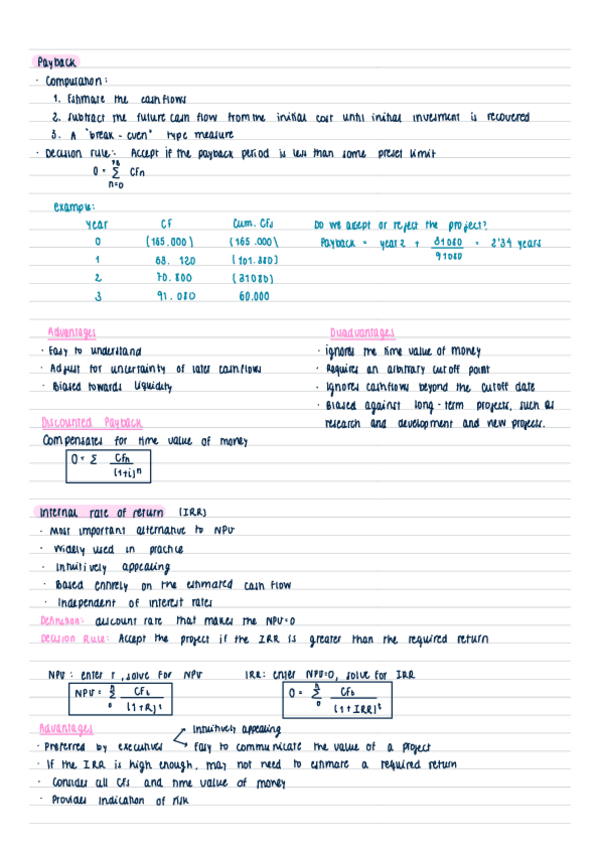 Payback
· Computation:
1. Estimate the cashflows
2. Subtract the future cash flow from the initial cost until initial investment is recovered
3. A "break-even" type measure
· Decision rule: Accept if the payback period is less than some preset limit
0 = Σ CFn
n=0
Example:
Year CF Cum. CFs Do we accept or reject the project?
0 (165.000) (165.000) Payback = year 2 + 31080/91080 = 2'34 years
1 63.120 (101.880)
2 70.800 (31080)
3 91.080 60.000
Advantages Disadvantages
· Easy to understand · ignores the time value of money
· Adjust for uncertainty of later cashflows · Requires an arbitrary cutoff point
· Biased towards liquidity · Ignores cashflows beyond the cutoff date
· Biased against long-term projects, such as
Discounted Payback research and development and new projects.
Compensates for time value of money
0 = Σ CFn/(1+i)^n
Internal rate of return (IRR)
· Most important alternative to NPV
· Widely used in practice
· Intuitively appealing
· Based entirely on the estimated cash flow
· Independent of interest rates
Definition: discount rate that makes the NPV=0
Decision Rule: Accept the project if the IRR is greater than the required return
NPV: enter r, solve for NPV IRR: enter NPV=0, solve for IRR
NPV = Σ CFt/(1+R)^t 0 = Σ CFt/(1+IRR)^t
Advantages Intuitively appealing
· Preferred by executives Easy to communicate the value of a project
· If the IRR is high enough, may not need to estimate a required return
· Consider all CFs and time value of money
· Provides indication of risk